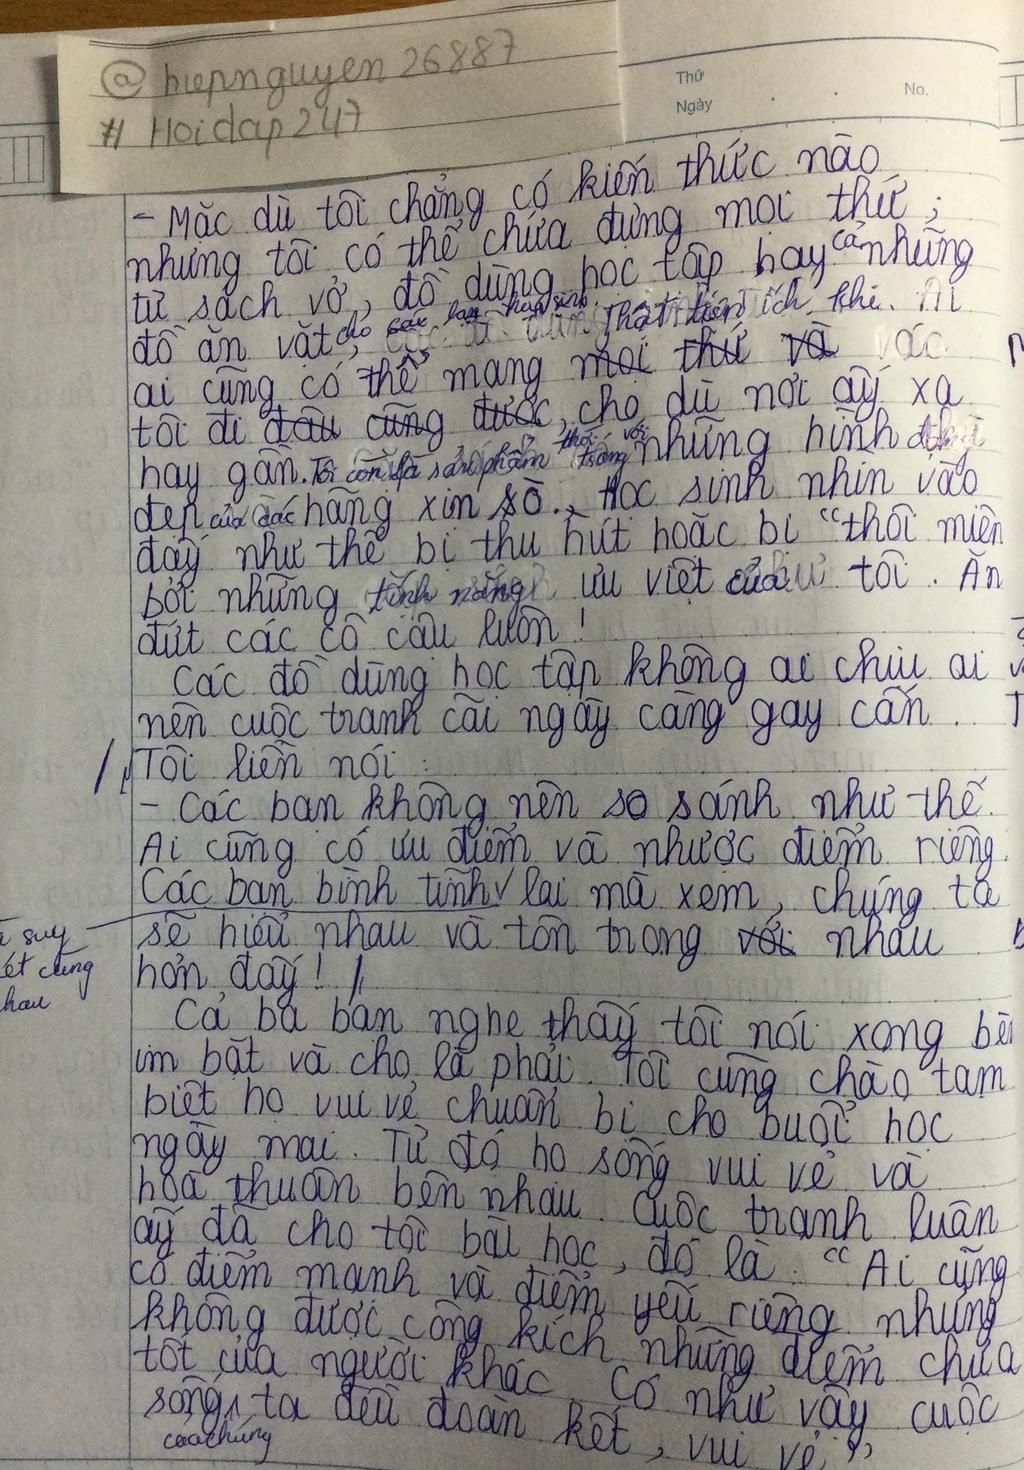 @ hiepnguyen26887
# Hoidap247
Thứ
Ngày
No.
- Mặc dù tôi chẳng có kiến thức nào
nhưng tôi có thể chứa đựng mọi thứ;
từ sách vở, đồ dùng học tập hay cả những
đồ ăn vặt, cho các bạn học sinh. Thật tiện ích khi. Ai
ai cũng có thể mang mọi thứ và vác
tôi đi đâu cũng được, cho dù nơi ấy xa
hay gần. Tôi còn là sản phẩm thời trang với những hình
đẹp của các hãng xịn sò. Học sinh nhìn vào
đấy như thể bị thu hút hoặc bị "thôi miên
bởi những tính năng ưu việt của tôi. Ăn
đứt các cô cậu luôn!
Các đồ dùng học tập không ai chịu ai
nên cuộc tranh cãi ngày càng gay cấn.
Tôi liền nói:
- Các bạn không nên so sánh như thế.
Ai cũng có ưu điểm và nhược điểm riêng.
Các bạn bình tĩnh lại mà xem, chúng ta
suy
sẽ hiểu nhau và tôn trọng với nhau
ét cùng
hơn đấy!
hau
Cả ba bạn nghe thấy tôi nói xong bèn
im bặt và cho là phải. Tôi cũng chào tạm
biệt họ vui vẻ chuẩn bị cho buổi học
ngày mai. Từ đó họ sống vui vẻ và
hoà thuận bên nhau. Cuộc tranh luận
ấy đã cho tôi bài học, đó là: "Ai cũng
có điểm mạnh và điểm yếu riêng nhưng
không được công kích những điểm chưa
tốt của người khác. Có như vậy cuộc
sống ta đều đoàn kết, vui vẻ"
của chúng